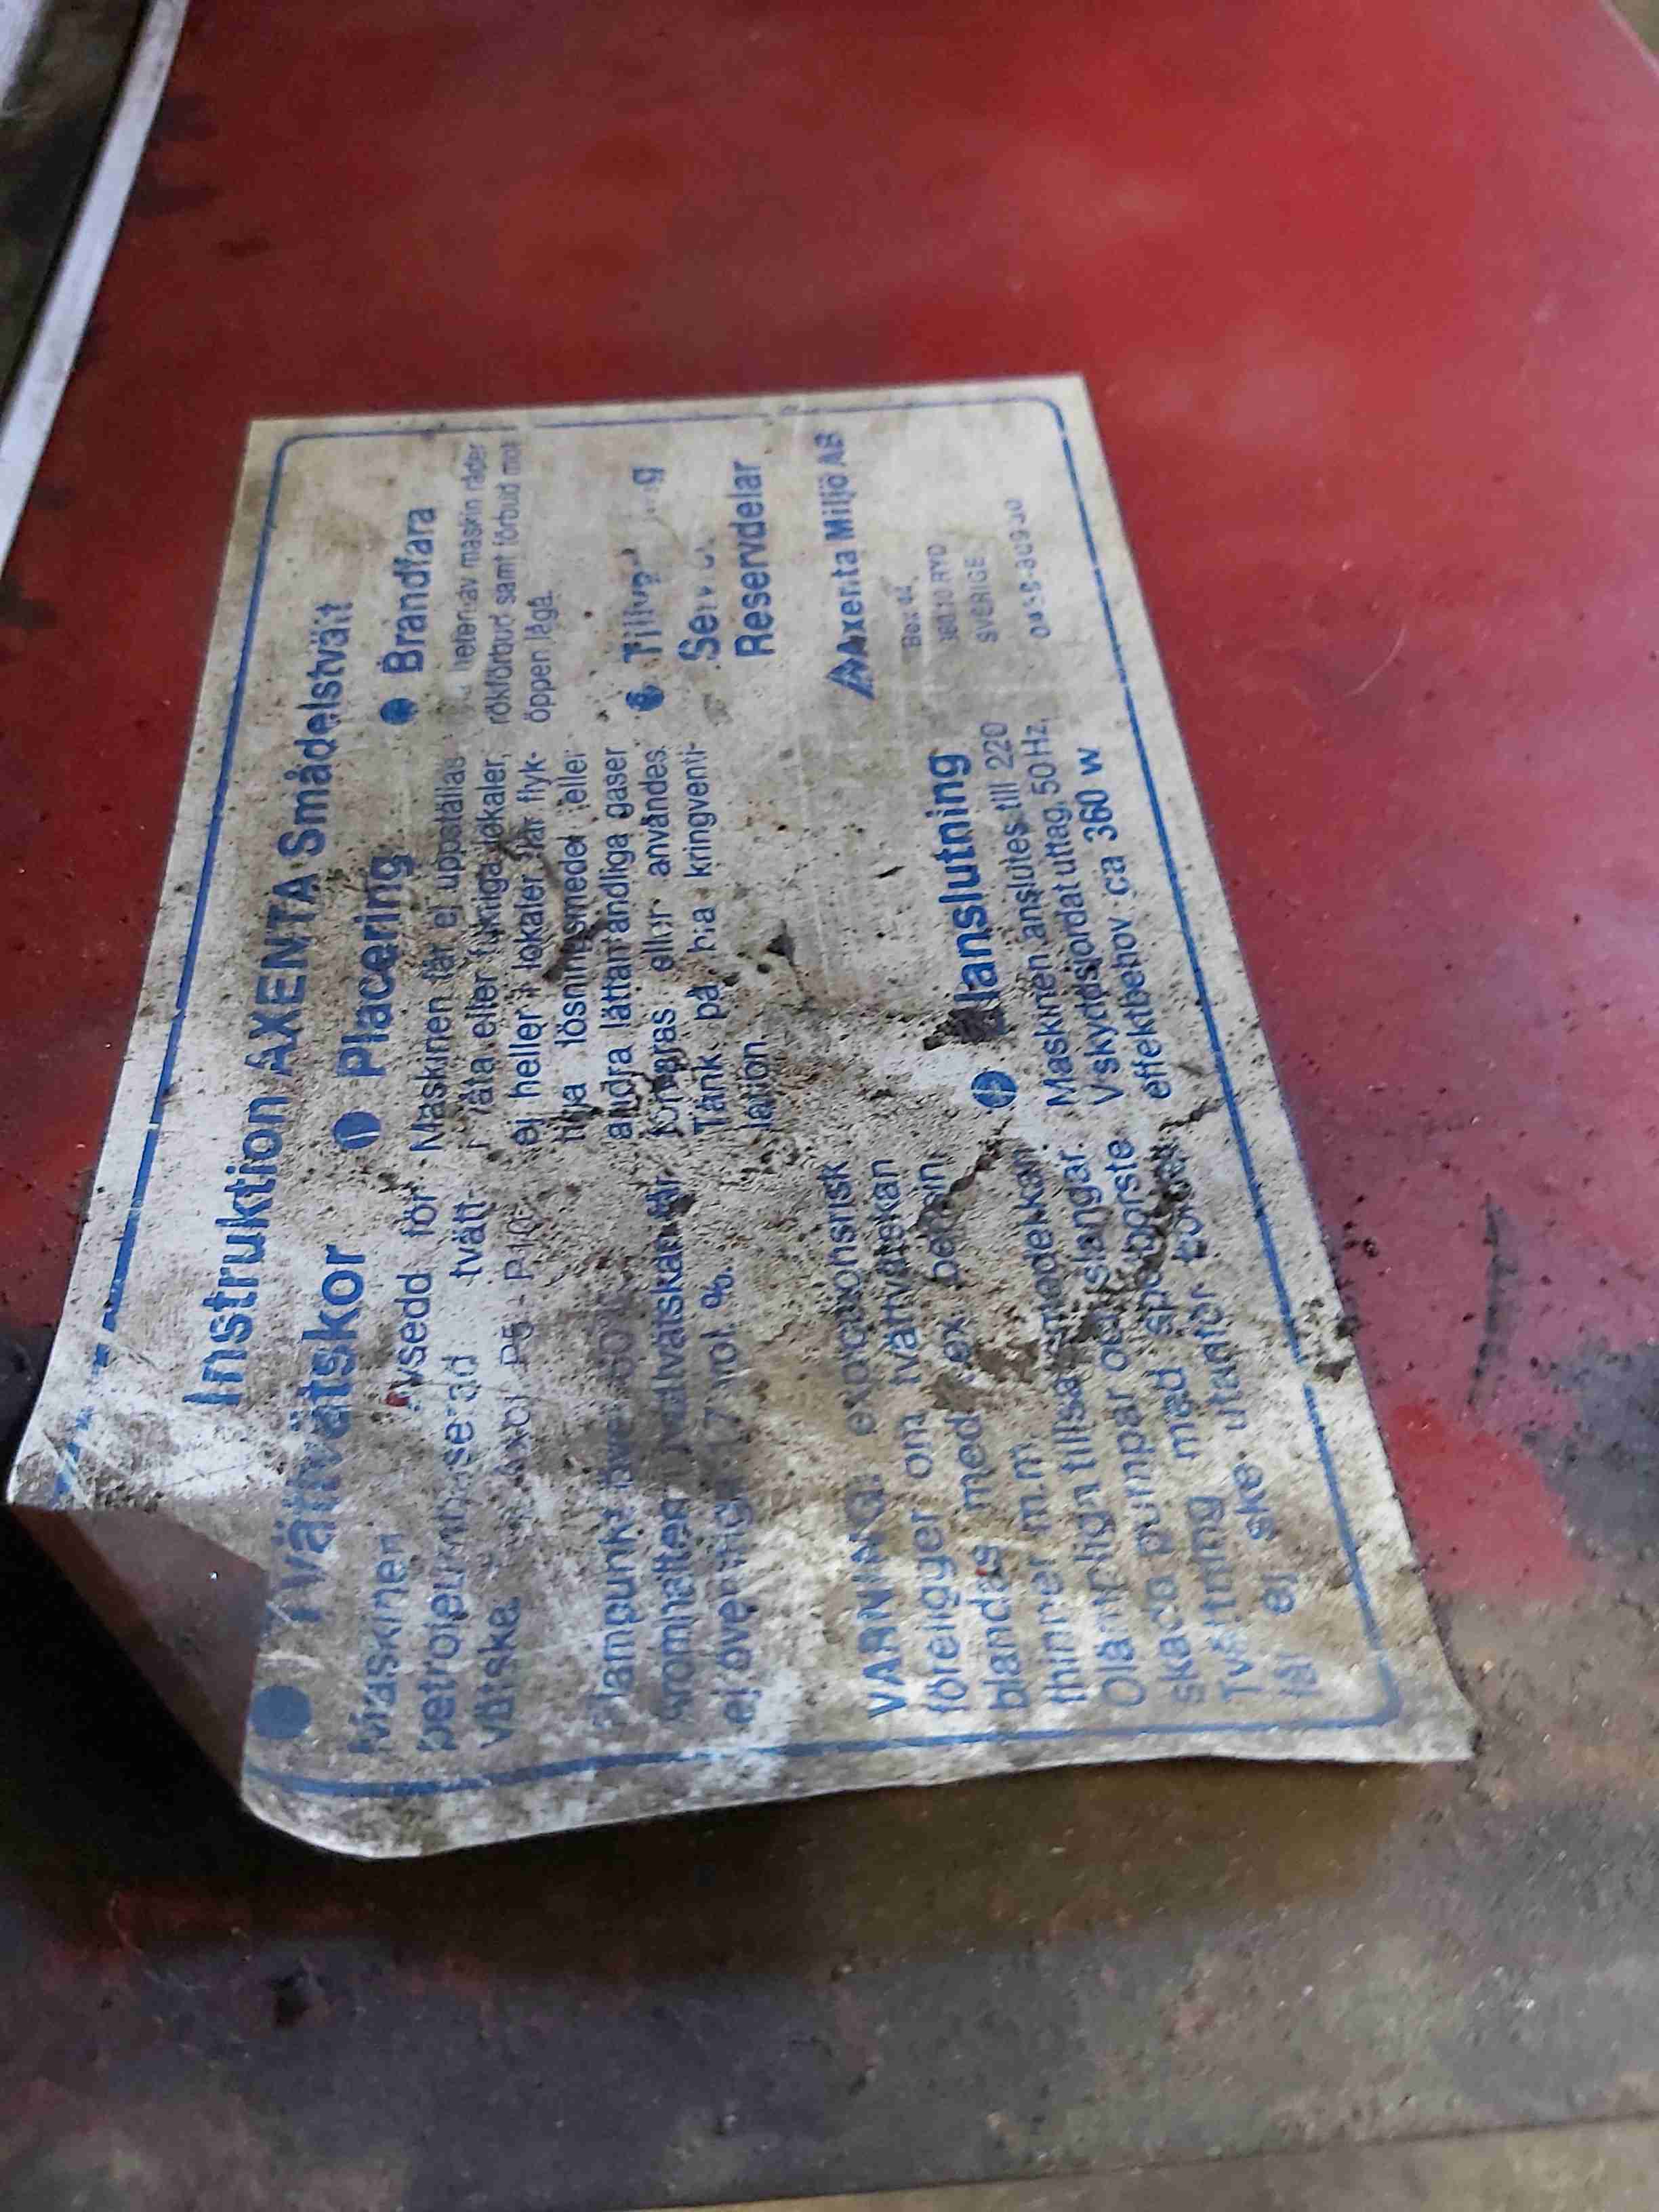 Instruktion AXENTA Smådelstvätt
Tvättvätskor
Maskinen avsedd för
petroleumbaserad tvätt-
vätska Axol P5 - P10
Flampunkt
aromhalten tvättvätskan får
ej överstiga 17 vol %.
VARNING: explosionsrisk
föreligger om tvättvätskan
blandas med ex bensin,
thinner m.m.
Olämpligh tillsatsmedel kan
skada pumpar och slangar.
Tvättning med spolborste
får ej ske utanför
Placering
Maskinen får ej uppställas
i våta eller fuktiga lokaler,
ej heller i lokaler där flyk-
tiga lösningsmedel eller
andra lättantändliga gaser
förvaras eller användes.
Tänk på bra kringventi-
lation.
Elanslutning
Maskinen anslutes till 220
V skyddsjordat uttag, 50Hz,
effektbehov ca 360 w
Brandfara
heten av maskin råder
rökförbud samt förbud mot
öppen låga.
Reservdelar
Axenta Miljö AB
Box
RYD
SVERIGE